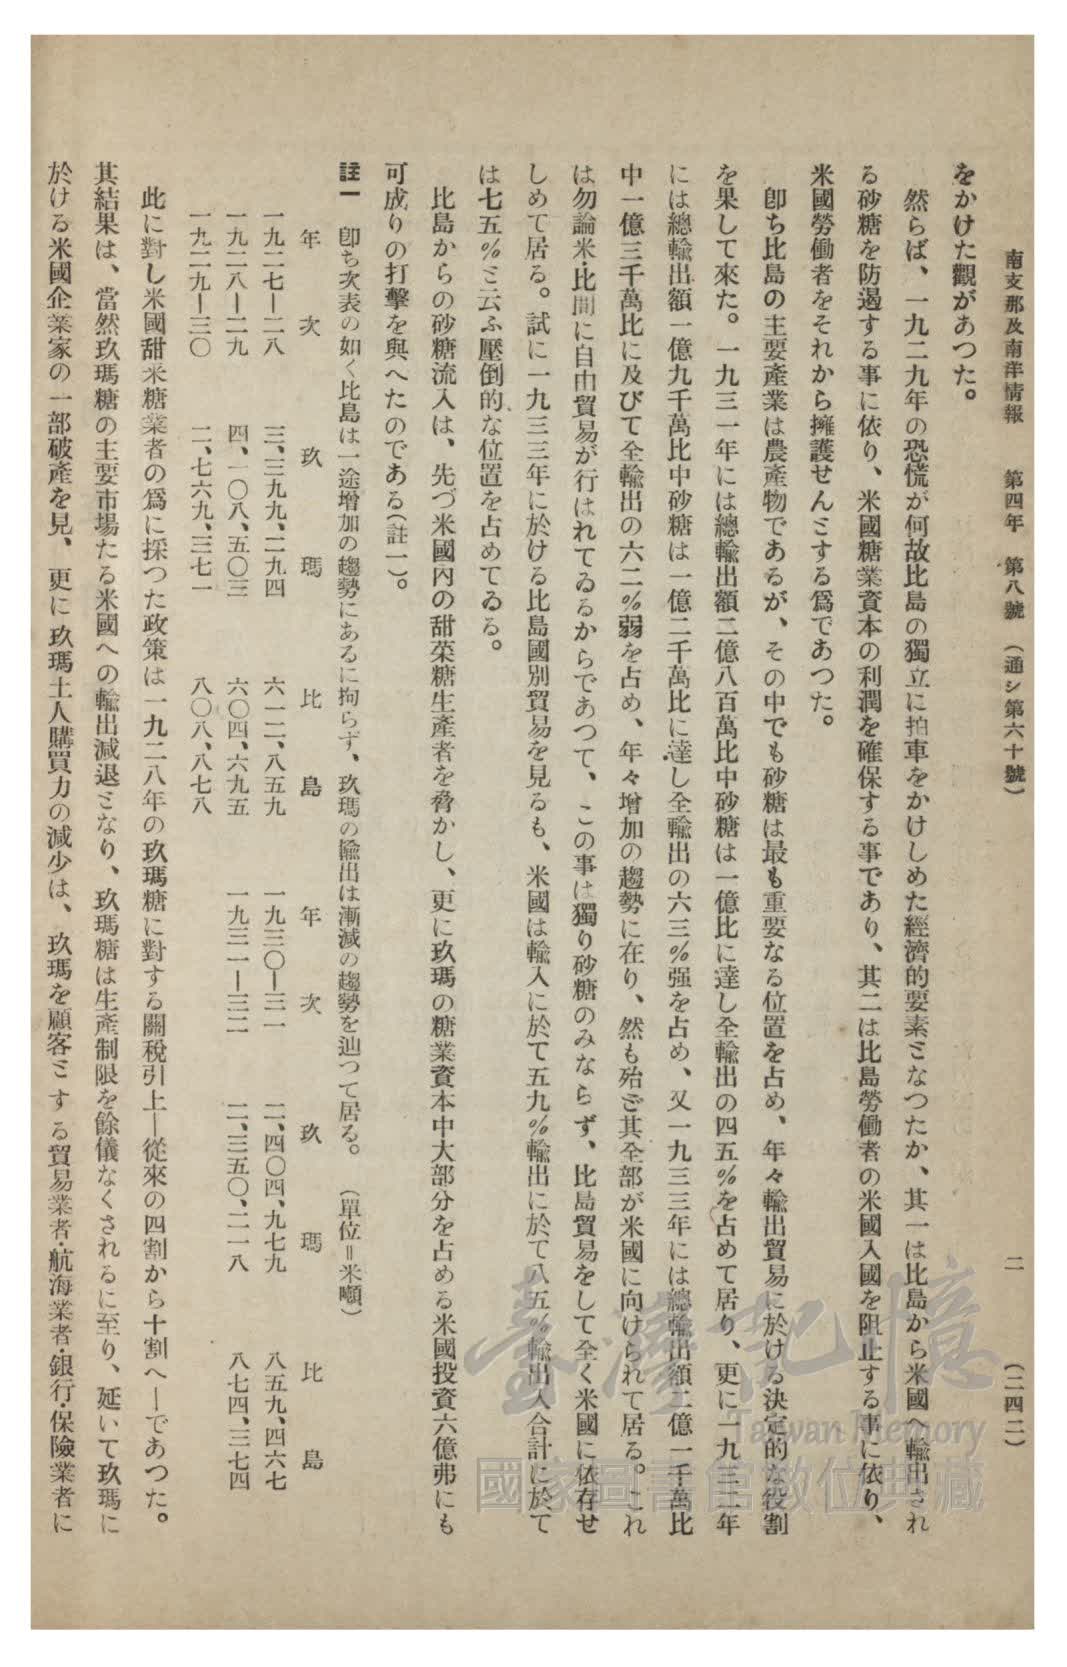 南支那及南洋情報　第四年　第八號　（通シ第六十號）　二　（二四二）
をかけた觀があつた。
然らば、一九二九年の恐慌が何故比島の獨立に拍車をかけしめた經濟的要素ミなつたか、其一は比島から米國へ輸出され
る砂糖を防遏する事に依り、米國糖業資本の利潤を確保する事であり、其二は比島勞働者の米國入國を阻止する事に依り、
米國勞働者をそれから擁護せんミする爲であつた。
卽ち比島の主要產業は農產物であるが、その中でも砂糖は最も重要なる位置を占め、年々輸出貿易に於ける決定的な役割
を果して來た。一九三一年には總輸出額二億八百萬比中砂糖は一億比に達し全輸出の四五％を占めて居り、更に一九三二年
には總輸出額一億九千萬比中砂糖は一億二千萬比に達し全輸出の六三％强を占め、又一九三三年には總輸出額二億一千萬比
中一億三千萬比に及びて全輸出の六二％弱を占め、年々增加の趨勢に在り、然も殆ご其全部が米國に向けられて居る。これ
は勿論米·比間に自由貿易が行はれてゐるからであつて、この事は獨り砂糖のみならず、比島貿易をして全く米國に依存せ
しめて居る。試に一九三三年に於ける比島國別貿易を見るも、米國は輸入に於て五九％輸出に於て八五％輸出入合計に於て
は七五％ミ云ふ壓倒的な位置を占めてゐる。
比島からの砂糖流入は、先づ米國內の甜菜糖生產者を脅かし、更に玖瑪の糖業資本中大部分を占める米國投資六億弗にも
可成りの打擊を與へたのである（註一）。
註一　卽ち次表の如く比島は一途增加の趨勢にあるに拘らず、玖瑪の輸出は漸減の趨勢を辿つて居る。（單位＝米噸）
年次　玖瑪　比島　年次　玖瑪　比島
一九二七—二八　三、三九九、二九四　六一二、八五九　一九三〇—三一　二、四〇四、九七九　八五九、四六七
一九二八—二九　四、一〇八、五〇三　六〇四、六九五　一九三一—三二　二、三五〇、二一八　八七四、三七四
一九二九—三〇　二、七六九、三七一　八〇八、八七八
此に對し米國甜米糖業者の爲に採つた政策は一九二八年の玖瑪糖に對する關稅引上—從來の四割から十割へ—であつた。
其結果は、當然玖瑪糖の主要市場たる米國への輸出減退ミなり、玖瑪糖は生產制限を餘儀なくされるに至り、延いて玖瑪に
於ける米國企業家の一部破產を見、更に玖瑪土人購買力の減少は、玖瑪を顧客ミする貿易業者·航海業者·銀行·保險業者に
臺灣記憶
Taiwan Memory
國家圖書館數位典藏